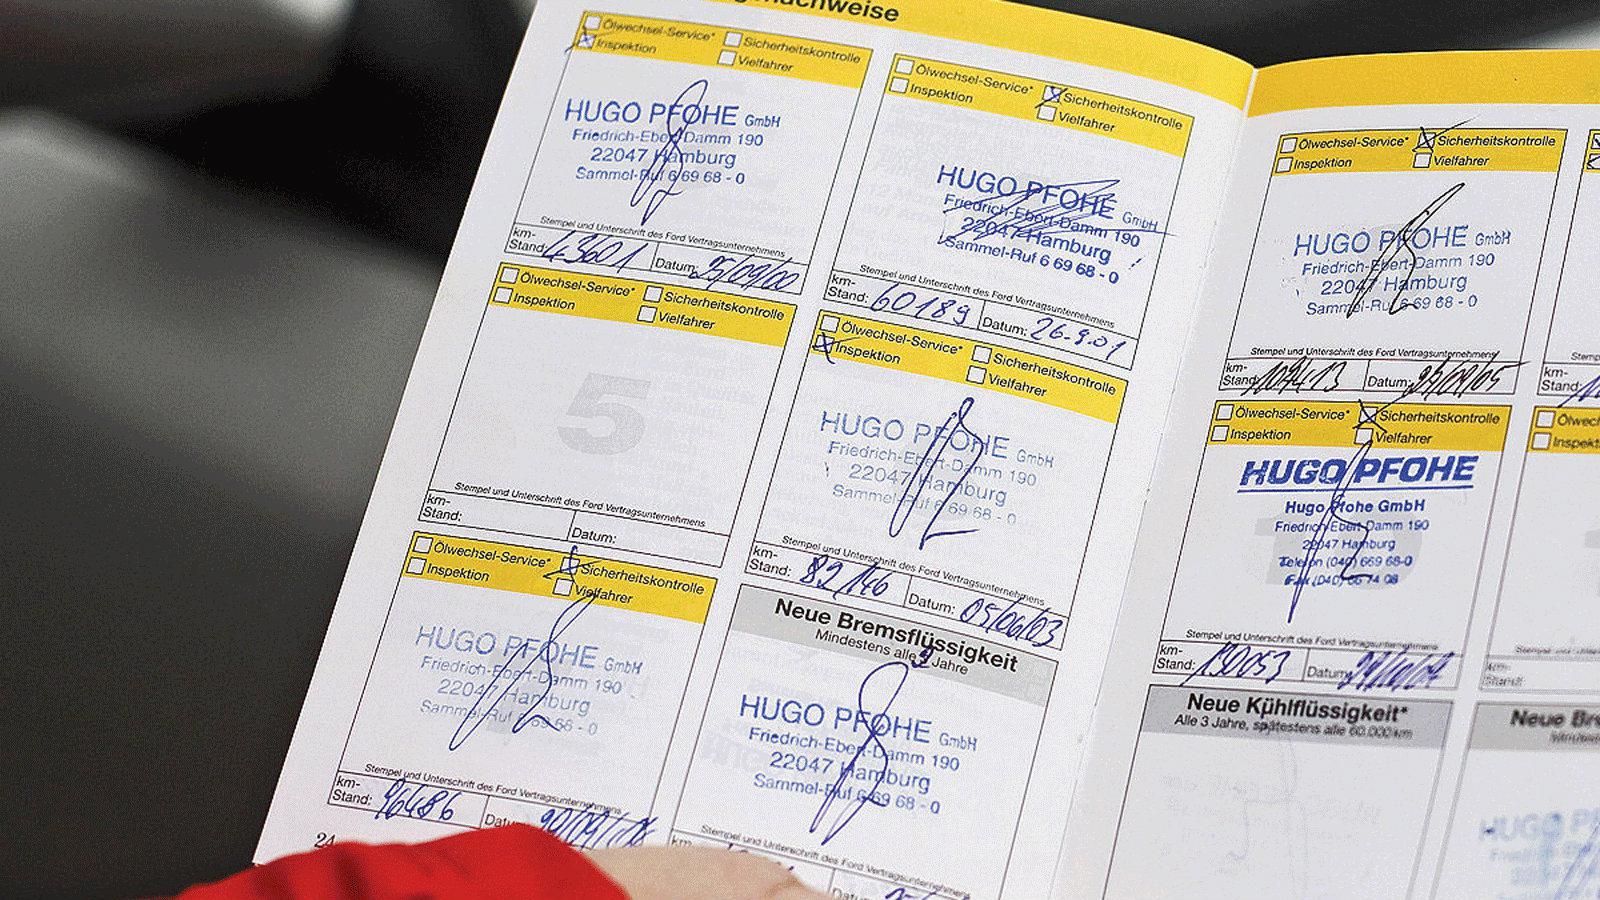 Ölwechsel-Service*
Sicherheitskontrolle
Inspektion
Vielfahrer
HUGO PFOHE GmbH
Friedrich-Ebert-Damm 190
22047 Hamburg
Sammel-Ruf 6 69 68 - 0
Stempel und Unterschrift des Ford Vertragsunternehmens
km-
Stand: 43601
Datum: 25/09/00
Ölwechsel-Service*
Sicherheitskontrolle
Inspektion
Vielfahrer
HUGO PFOHE GmbH
Friedrich-Ebert-Damm 190
22047 Hamburg
Sammel-Ruf 6 69 68 - 0
Stempel und Unterschrift des Ford Vertragsunternehmens
km-
Stand: 60189
Datum: 26.9.01
Ölwechsel-Service*
Sicherheitskontrolle
Inspektion
Vielfahrer
5
Stempel und Unterschrift des Ford Vertragsunternehmens
km-
Stand:
Datum:
Ölwechsel-Service*
Sicherheitskontrolle
Inspektion
Vielfahrer
HUGO PFOHE GmbH
Friedrich-Ebert-Damm 190
22047 Hamburg
Sammel-Ruf 6 69 68 - 0
Stempel und Unterschrift des Ford Vertragsunternehmens
km-
Stand: 82146
Datum: 05/06/03
Ölwechsel-Service*
Sicherheitskontrolle
Inspektion
Vielfahrer
HUGO PFOHE GmbH
Friedrich-Ebert-Damm 190
22047 Hamburg
Sammel-Ruf 6 69 68 - 0
Stempel und Unterschrift des Ford Vertragsunternehmens
km-
Stand: 96486
24
Neue Bremsflüssigkeit
Mindestens alle Jahre
HUGO PFOHE GmbH
Friedrich-Ebert-Damm 190
22047 Hamburg
Sammel-Ruf 6 69 68 - 0
Stempel und Unterschrift des Ford Vertragsunternehmens
km-
Datum:
Ölwechsel-Service*
Sicherheitskontrolle
Inspektion
Vielfahrer
HUGO PFOHE GmbH
Friedrich-Ebert-Damm 190
22047 Hamburg
Sammel-Ruf 6 69 68 - 0
Stempel und Unterschrift des Ford Vertragsunternehmens
km-
Stand: 109413
Datum:
Ölwechsel-Service*
Sicherheitskontrolle
Inspektion
Vielfahrer
HUGO PFOHE
Hugo Pfohe GmbH
Friedrich-Ebert-Damm 190
22047 Hamburg
Telefon (040) 669 68-0
Stempel und Unterschrift des Ford Vertragsunternehmens
km-
Stand: 130053
Datum:
Neue Kühlflüssigkeit*
Alle 3 Jahre, spätestens alle 60.000 km
km-
Stand:
Neue
HUGO